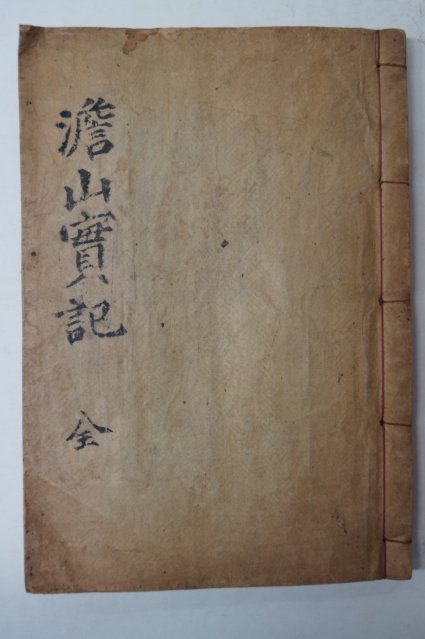 澹山實記 全